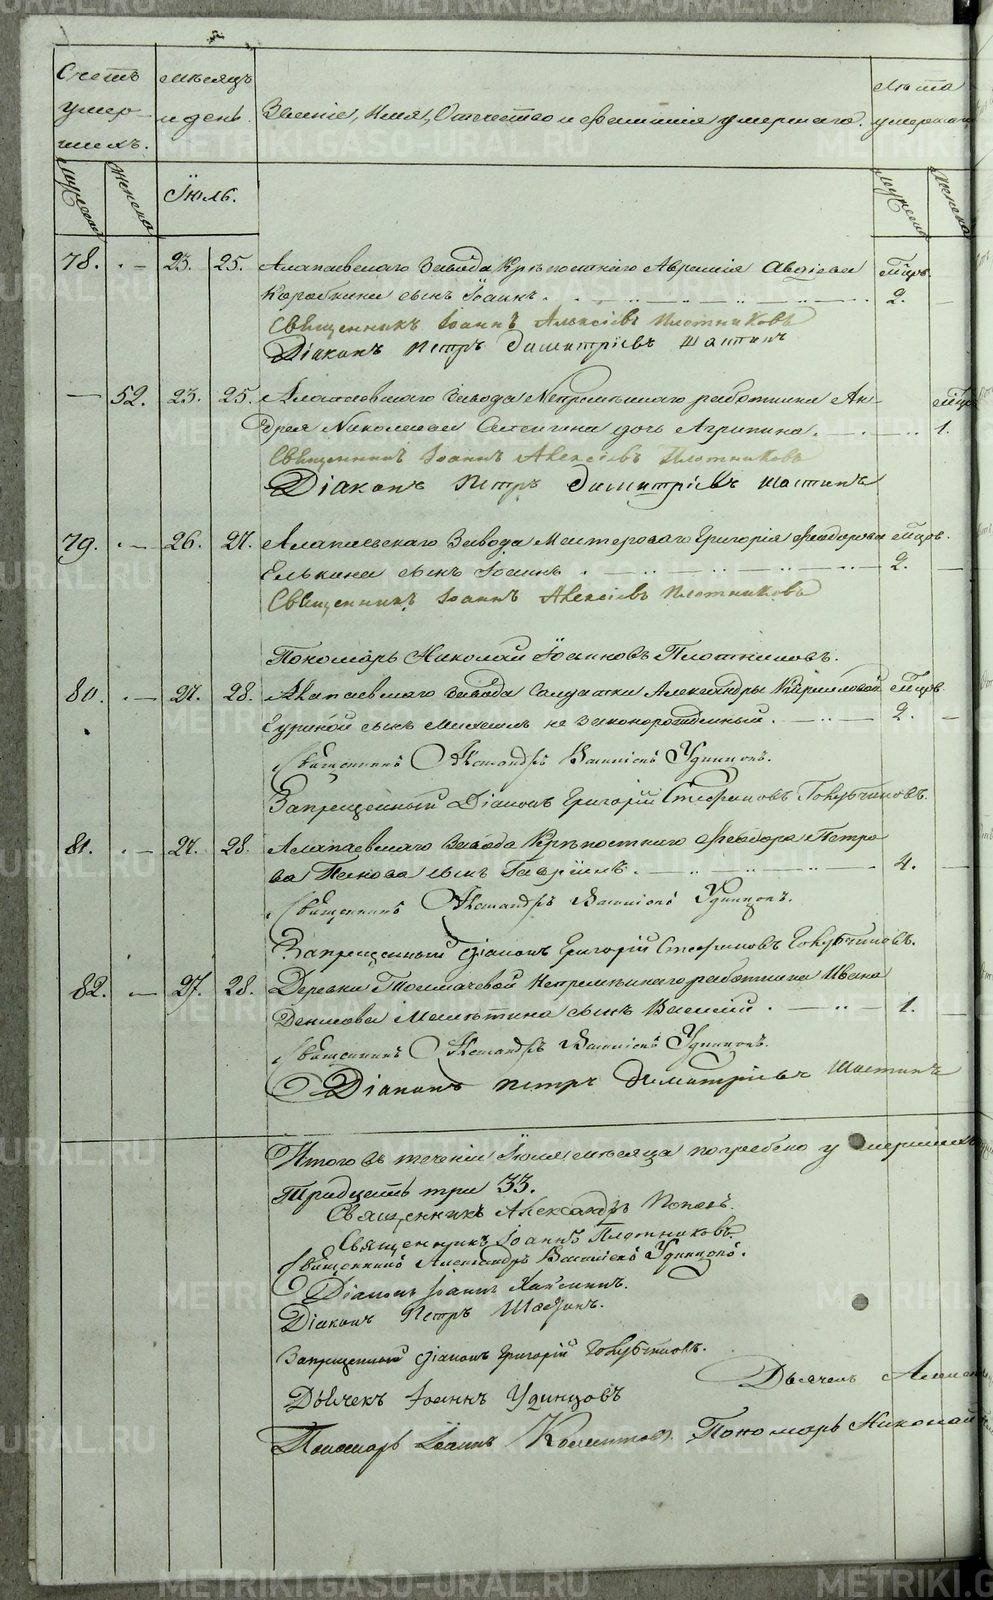 Счетъ умер-шихъ.
Мѣсяцъ и день.
Званіе, Имя, Отчество и фамилія умершаго.
Лѣта умершаго
мужеска
женска
Іюль.
мужеска
женска
78. 23. 25. Алапаевскаго завода Крѣпостнаго Аврамія Авдіева мцов.
Коробкина сынъ Іоаннъ. 2.
Священникъ Іоаннъ Алексіевъ Плотниковъ
Діаконъ Петръ Димитріевъ Шастинъ
52. 23. 25. Алапаевскаго завода Непремѣннаго работника Ан-
дрея Николаева дочь Агрипина. 1.
Священникъ Іоаннъ Алексіевъ Плотниковъ
Діаконъ Петръ Димитріевъ Шастинъ
79. 26. 27. Алапаевскаго завода Мастероваго Григорія Феодорова мцов.
Елькина сынъ Іоаннъ. 2.
Священникъ Іоаннъ Алексіевъ Плотниковъ
Пономарь Николай Іоанновъ Плотниковъ.
80. 27. 28. Алапаевскаго завода Солдатки Александры Кириловой мцов.
сынъ Михаилъ не законорожденный. 2.
Священникъ Александръ Удинцовъ.
Запрещенный Діаконъ Григорій Стефановъ Голубчиковъ.
81. 27. 28. Алапаевскаго завода Крѣпостнаго Феодора Петро
ва сынъ Гавріилъ. 4.
Священникъ Александръ Удинцовъ.
Запрещенный Діаконъ Григорій Стефановъ Голубчиковъ.
82. 27. 28. Деревни Толмачевой Непремѣннаго работника Ивана
Денисова сынъ Василій. 1.
Священникъ Александръ Удинцовъ.
Діаконъ Петръ Димитріевъ Шастинъ
Итого въ теченіи Іюля мѣсяца погребено умершихъ
Тридцать три 33.
Священникъ Александръ Поповъ.
Священникъ Іоаннъ Плотниковъ.
Священникъ Александръ Удинцовъ.
Діаконъ Іоаннъ
Діаконъ Петръ Шастинъ.
Запрещенный Діаконъ Григорій Голубчиковъ.
Дьячекъ
Дьячекъ Іоаннъ Удинцовъ
Пономарь Іоаннъ Пономарь Николай
METRIKI.GASO-URAL.RU